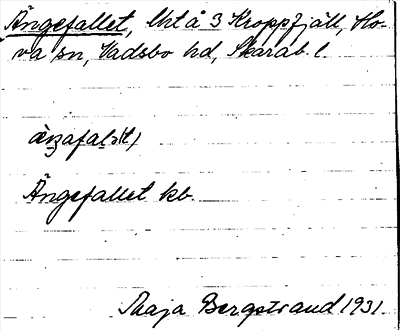 Ängefallet, Uht å 3 Kroppfjäll, Ho-
va sn, Vadsbo hd, Skarab. l.
Ängefallet kb.
Maja Bergstrand 1931